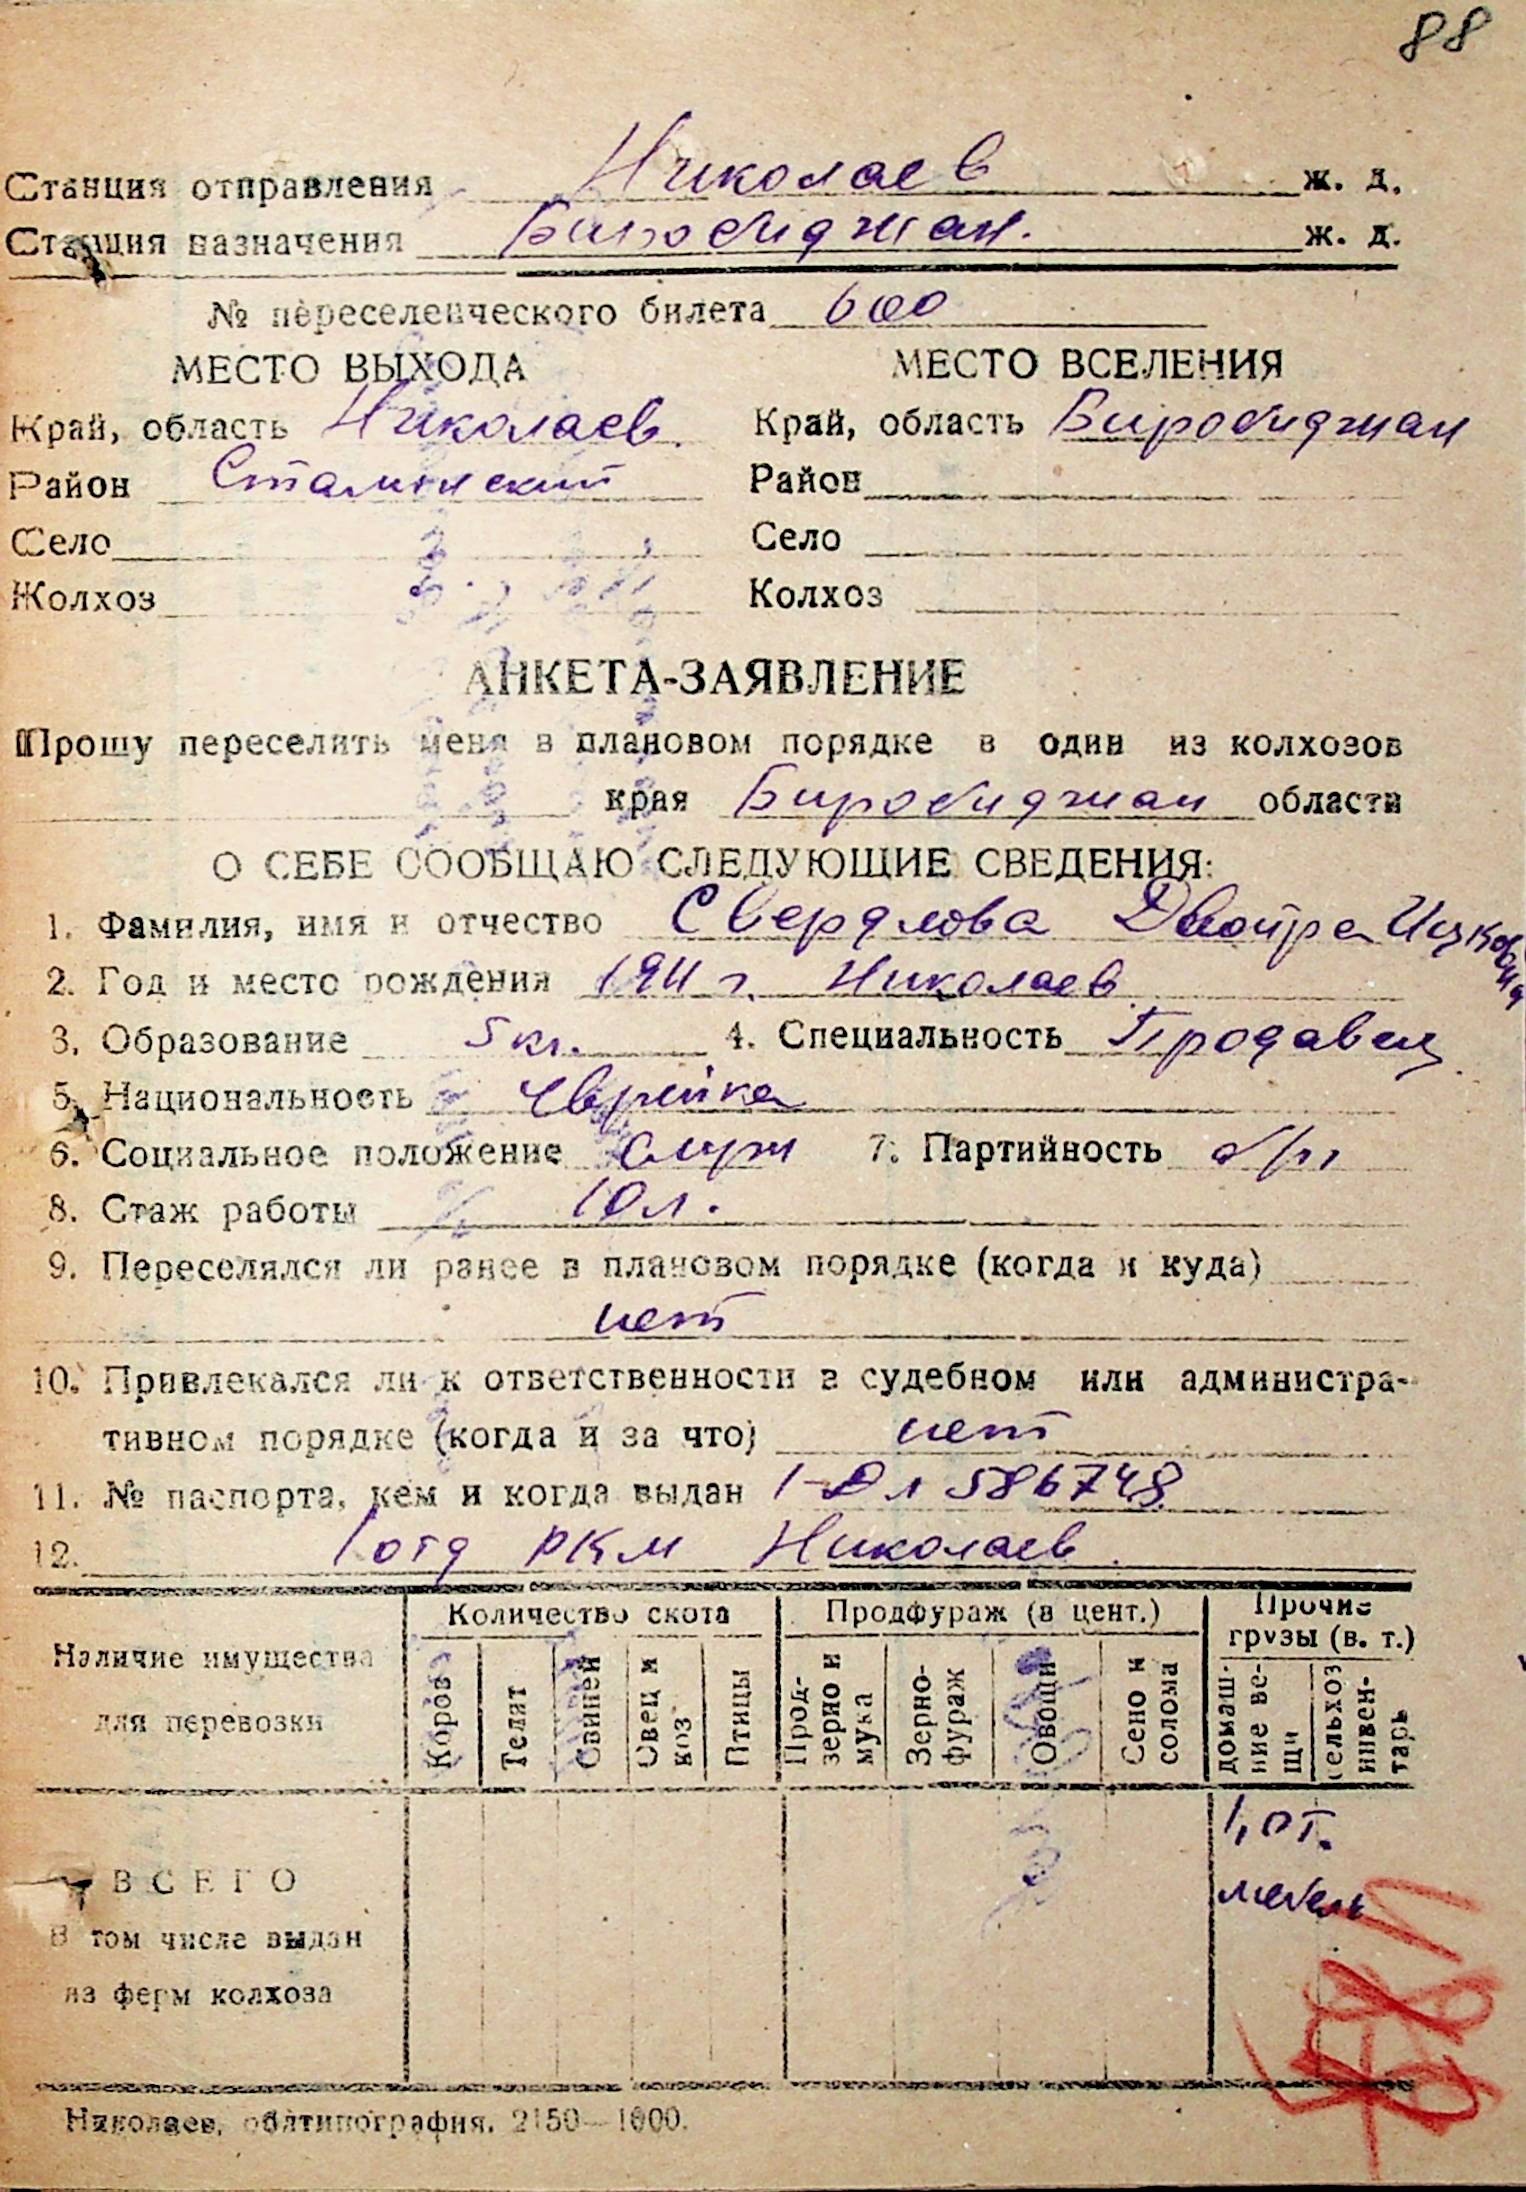 88
Станция отправления Николаев ж. д.
Станция назначения Биробиджан. ж. д.
№ переселенческого билета 600
МЕСТО ВЫХОДА МЕСТО ВСЕЛЕНИЯ
Край, область Николаев. Край, область Биробиджан
Район Сталинский Район
Село Село
Колхоз Колхоз
АНКЕТА-ЗАЯВЛЕНИЕ
Прошу переселить меня в плановом порядке в один из колхозов
края Биробиджан области
О СЕБЕ СООБЩАЮ СЛЕДУЮЩИЕ СВЕДЕНИЯ:
1. Фамилия, имя и отчество Свердлова Двойра Ицковна
2. Год и место рождения 1911 г. Николаев
3. Образование 5 кл. 4. Специальность Продавец
5. Национальность еврейка
6. Социальное положение служ 7. Партийность б/п
8. Стаж работы 10 л.
9. Переселялся ли ранее в плановом порядке (когда и куда)
нет
10. Привлекался ли к ответственности в судебном или администра-
тивном порядке (когда и за что) нет
11. № паспорта, кем и когда выдан 586748
12. 1 отд РКМ Николаев.
Наличие имущества для перевозки Количество скота Продфураж (в цент.) Прочие грузы (в. т.)
Коров Телят Свиней Овец и коз Птицы Прод-зерно и мука Зерно-фураж Овощи Сено и солома домаш-ние ве-щи сельхоз инвен-тарь
1,0 т.
ВСЕГО мебель
В том числе выдан
из ферм колхоза
Николаев, облтипография. 2150—1000.